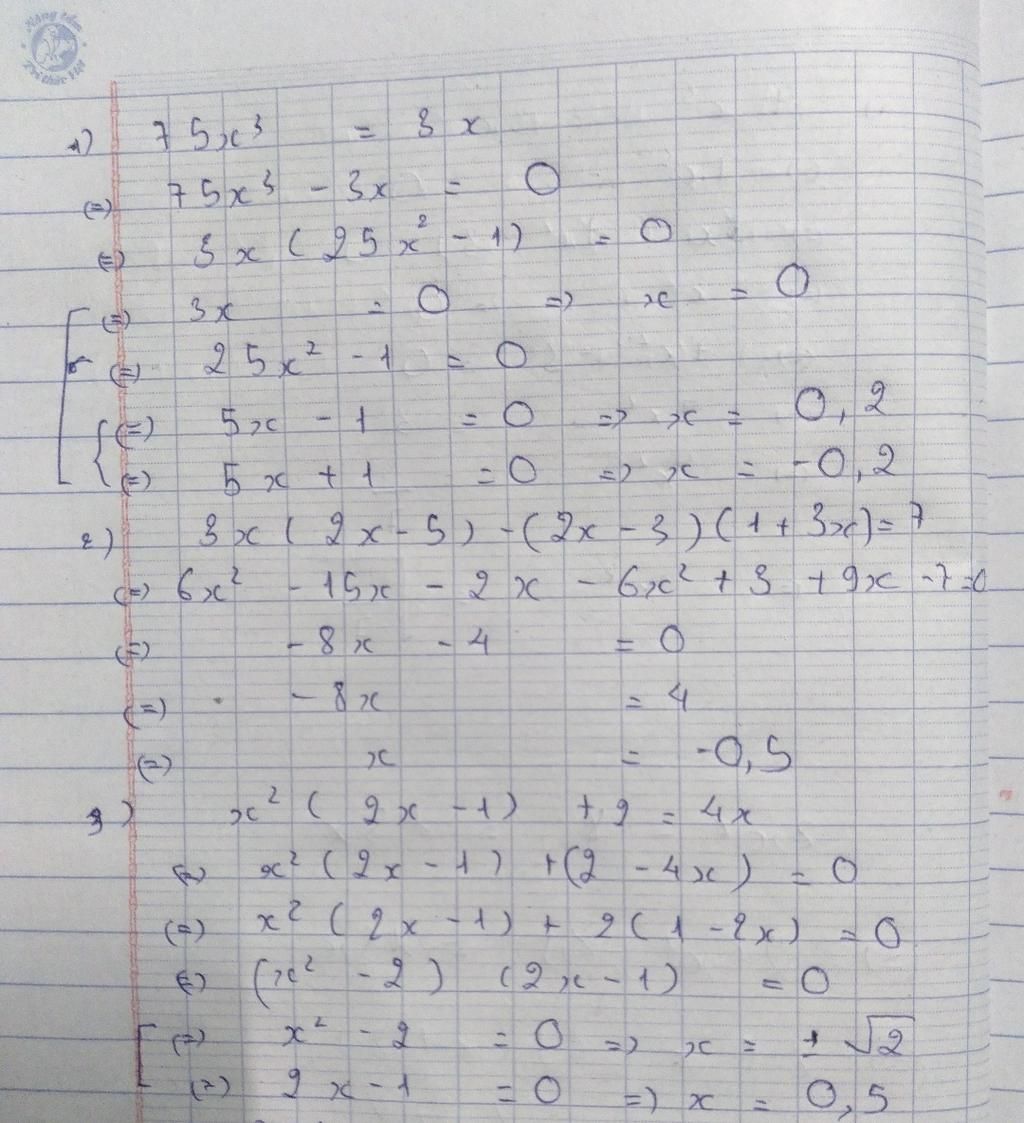 Nâng tầm
Tri thức Việt
1) 75x³ = 3x
(=) 75x³ - 3x = 0
(=) 3x (25x² - 1) = 0
(=) 3x = 0 => x = 0
(=) 25x² - 1 = 0
(=) 5x - 1 = 0 => x = 0,2
(=) 5x + 1 = 0 => x = -0,2
2) 3x (2x - 5) - (2x - 3)(1 + 3x) = 7
(=) 6x² - 15x - 2x - 6x² + 3 + 9x - 7 = 0
(=) - 8x - 4 = 0
(=) - 8x = 4
(=) x = -0,5
3) x² (2x - 1) + 2 = 4x
(=) x² (2x - 1) + (2 - 4x) = 0
(=) x² (2x - 1) + 2(1 - 2x) = 0
(=) (x² - 2) (2x - 1) = 0
(=) x² - 2 = 0 => x = ± √2
(=) 2x - 1 = 0 => x = 0,5